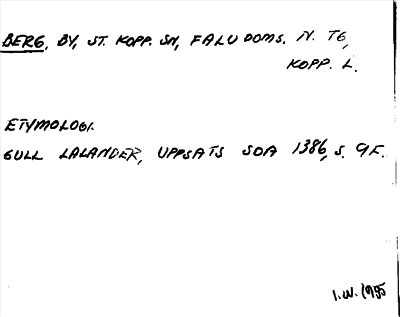 BERG, BY, ST. KOPP. SN, FALU DOMS. N. TG,
KOPP. L.
ETYMOLOGI.
GULL LALANDER, UPPSATS SOA 1386, S. 9 F.
I.W. 1955